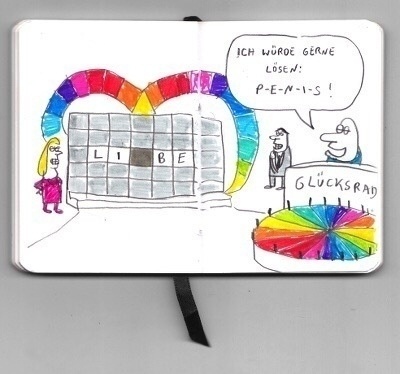 ICH WÜRDE GERNE
LÖSEN:
P-E-N-I-S !
L I B E
GLÜCKSRAD